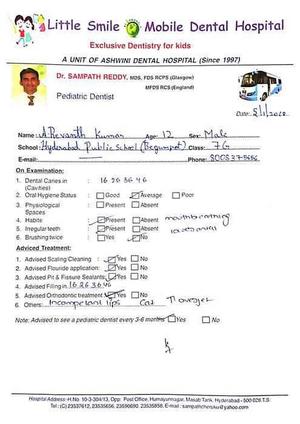 Little Smile Mobile Dental Hospital
Exclusive Dentistry for kids
A UNIT OF ASHWINI DENTAL HOSPITAL (Since 1997)
Dr. SAMPATH REDDY, MDS, FDS RCPS (Glasgow)
MFDS RCS (England)
Pediatric Dentist
Date:
Name: A Revanth Kumar Age: 12 Sex: Male
School: Hyderabad Public School (Begumpet) Class: 7 G
E-mail: Phone:
On Examination:
1. Dental Caries in (Cavities) : 16 26 36 46
2. Oral Hygiene Status : Good Average Poor
3. Physiological Spaces : Present Absent
4. Habits : Present Absent mouthbreathing
5. Irregular teeth : Present Absent
6. Brushing twice : Yes No
Adviced Treatment:
1. Advised Scaling Cleaning : Yes No
2. Advised Flouride application: Yes No
3. Advised Pit & Fissure Sealants: Yes No
4. Advised Filling in 16 26 36 46
5. Advised Orthodontic treatment Yes No
6. Others: Incompetent lips
Note: Advised to see a pediatric dentist every 3-6 months Yes No
Hospital Address: H.No. 10-3-304/13, Opp. Post Office, Humayunnagar, Masab Tank, Hyderabad - 500 028 T.S
Tel: (C) 23537612, 23535656, 23596690, 23535858, E-mail : sampathcheruku@yahoo.com